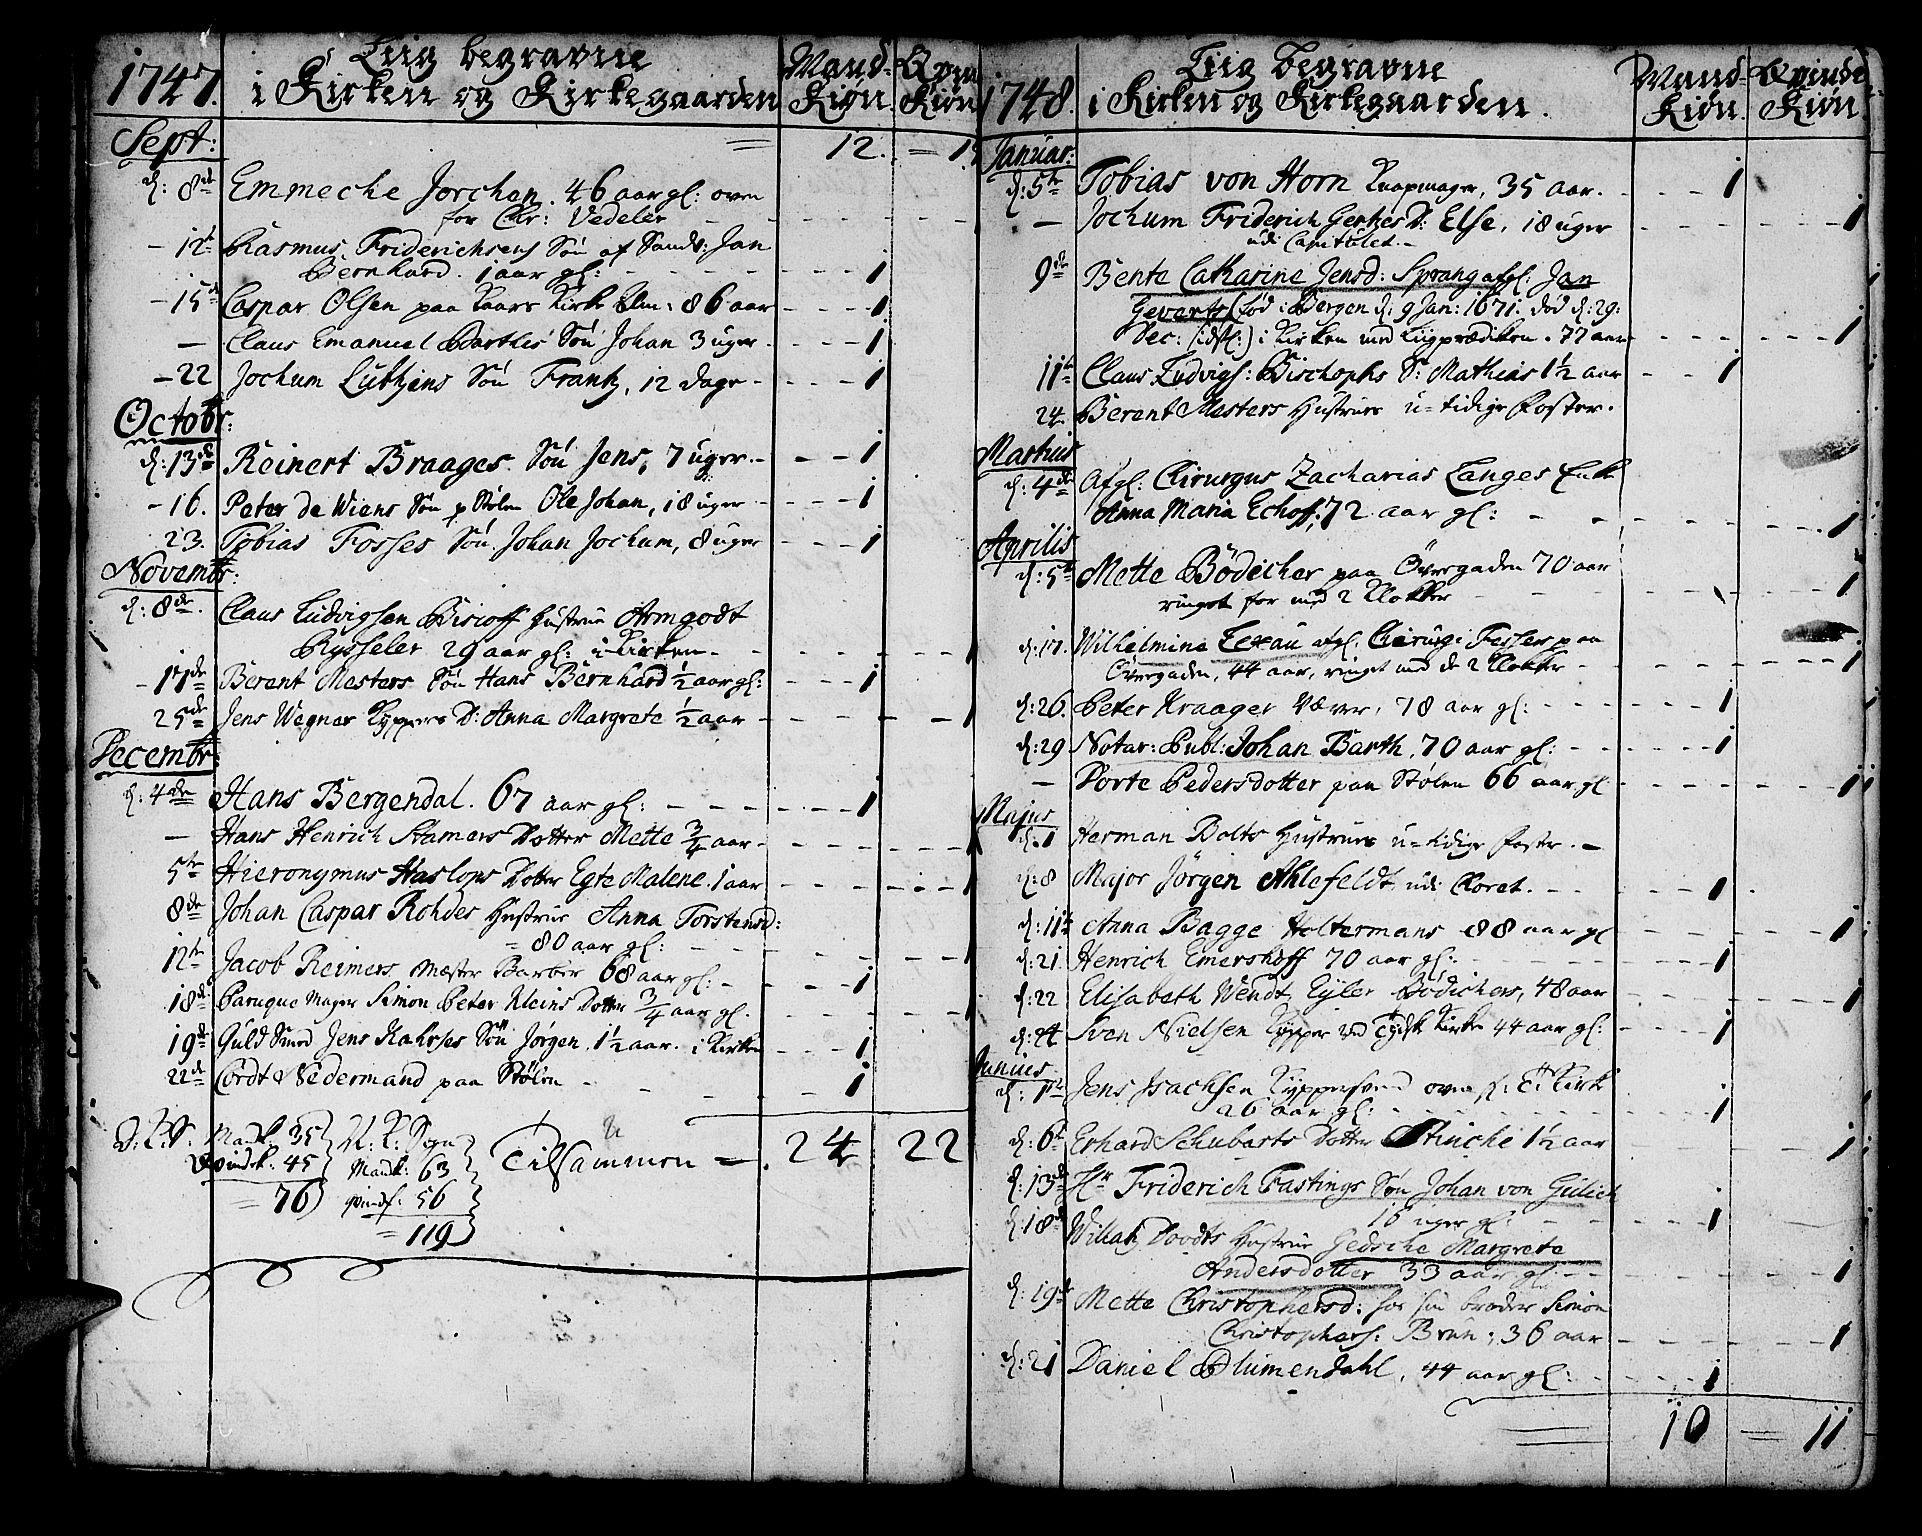 1747. Liig begravne Mand- Qvin
i Kirken og Kirkegaarden Kiøn. Kiøn
Sept: = 12. = 1
d: 8de Emmeche Jorchan. 46 aar gl: oven
for Chr: Vedeler
- 12te Rasmus Friderichsens Søn af Sands: Jan
Bernhard. 1 aar gl: - - - 1
- 15de Caspar Olsen paa Kaars Kirke Alm: 86 aar - - - 1
— Claus Emanuel Barthes Søn Johan 3 uger - - - 1
- 22 Jochum Lütkens Søn Frantz, 12 dage - - - 1
Octobr:
d: 13de Reinert Braages Søn Jens, 7 uger. - - - 1
- 16. Peter de Wiens Søn p Stølen Ole Johan, 18 uger - - - 1
23. Tobias Fosses Søn Johan Jochum, 8 uger - - - 1
Novembr:
d: 8de. Claus Ludvigsen Bisioff Hustrue Armgodt
Rysseler 29 aar gl: i Kirken - - - 1
- 17de Berent Mesters Søn Hans Bernhard ½ aar gl: - - - 1
25de Jens Wegner Kyppers D: Anna Margrete ½ aar - - - 1
Decembr:
d: 4de Hans Bergendal. 67 aar gl: - - - 1
— Hans Henrich Stamers Dotter Mette ¾ aar - - - 1
5te Hieronymus Haslops Dotter Egte Malene. 1 aar - - - 1
8de Johan Caspar Rohdes Hustrue Anna Torstensd:
= 80 aar gl: - - - 1
12te Jacob Reimers, Mæster Barber 68 aar gl: - - - 1
18de Paruque Mager Simon Peter Kleins Dotter ¾ aar gl. - - - 1
19de Guld Smed Jens Kahrses Søn Jørgen, 1½ aar. i Kirken - - - 1
22de Cordt Nedermand paa Stølen - - - 1
D: K: S. Mandk: 35 N: K: Sogn
Qvindk: 45 Mandk: 63 Tilsammen = 24 22
= 76 qvindk: 56
= 119
1748. Liig begravne Mand- Qvinde
i Kirken og Kirkegaarden. Kiøn. Kiøn.
Januar:
d: 5te Tobias von Horn Knapmager, 35 aar. - - - 1
— Jochum Friderich Gertzes D: Else, 18 uger - - - 1
udi Capitulet. -
9de Bente Catharine Jensd: Sprang afgl: Jan
Gevertz (fød i Bergen d: 9 Jan: 1671. død d: 29:
Dec: (idstl:) i Kirken med Liigprædiken. 77 aar - - - 1
11te Claus Ludvigs: Bischophs S: Mathias 1½ aar - - 1
24. Berent Mesters Hustrues u-tidige Foster.
Martius
d: 4de Afgl: Chirurgus Zacharias Langes Enke
Anna Maria Echoff, 72 aar gl: - - - 1
Aprilis
d: 5te Mette Bödicher paa Övergaden 70 aar
ringet for med 2 Klokker - - - 1
d: 17. Wilhelmine afgl. Chirurgi Fesser paa
Övergaden, 44 aar, ringet med de 2 Klokker - - - 1
d: 26. Peter Kraager Væver, 78 aar gl: - - - 1
d: 29 Notar: Publ: Johan Barth, 70 aar gl: - - - 1
— Dorte Pedersdotter paa Stølen 66 aar gl - - - 1
Majus
d: 1 Herman Bolts Hustrues u-tidige foster. -
d: 8 Major Jörgen Ahlefeldt, udi Choret. - - - 1
d: 11te Anna Bagge Holtermans 88 aar gl - - - 1
d: 21. Henrich Emershoff 70 aar gl: - - - 1
d: 22 Elisabeth Wendt Eyler Bödichers, 48 aar - - - 1
d: 24 Sven Nielsen Kypper ved Tydsk Kirke 44 aar gl: - - - 1
Junius
d: 1te Jens Isachsen Kyppersvend oven f: T: Kirke
26 aar gl: - - - 1
d: 6te Erhard Schubarts Dotter Stinche 1½ aar - - - 1
d: 13de Hr Friderich Fastings Søn Johan von Gülich
15 uger gl: - - - 1
d: 18de Willatz Doodts Hustrue Gedsche Margrete
Andersdotter 33 aar gl. - - - 1
d: 19de Mette Christophersd: hos sin broder Simon
Christophers: Brun, 36 aar - - - 1
d: 21 Daniel Blumendahl, 44 aar gl: - - - 1
= 10 = 11